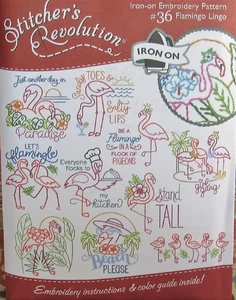 Stitcher's Revolution®
Iron-on Embroidery Pattern
#36 Flamingo Lingo
IRON ON
Just another day in
Paradise
SANDY TOES &
Salty
LIPS
BE A
FLAMINGO
IN A
FLOCK OF
PIGEONS
LET'S
flamingle
Everyone
flocks to
my
kitchen
stand
TALL
Beach
PLEASE
Embroidery instructions & color guide inside!